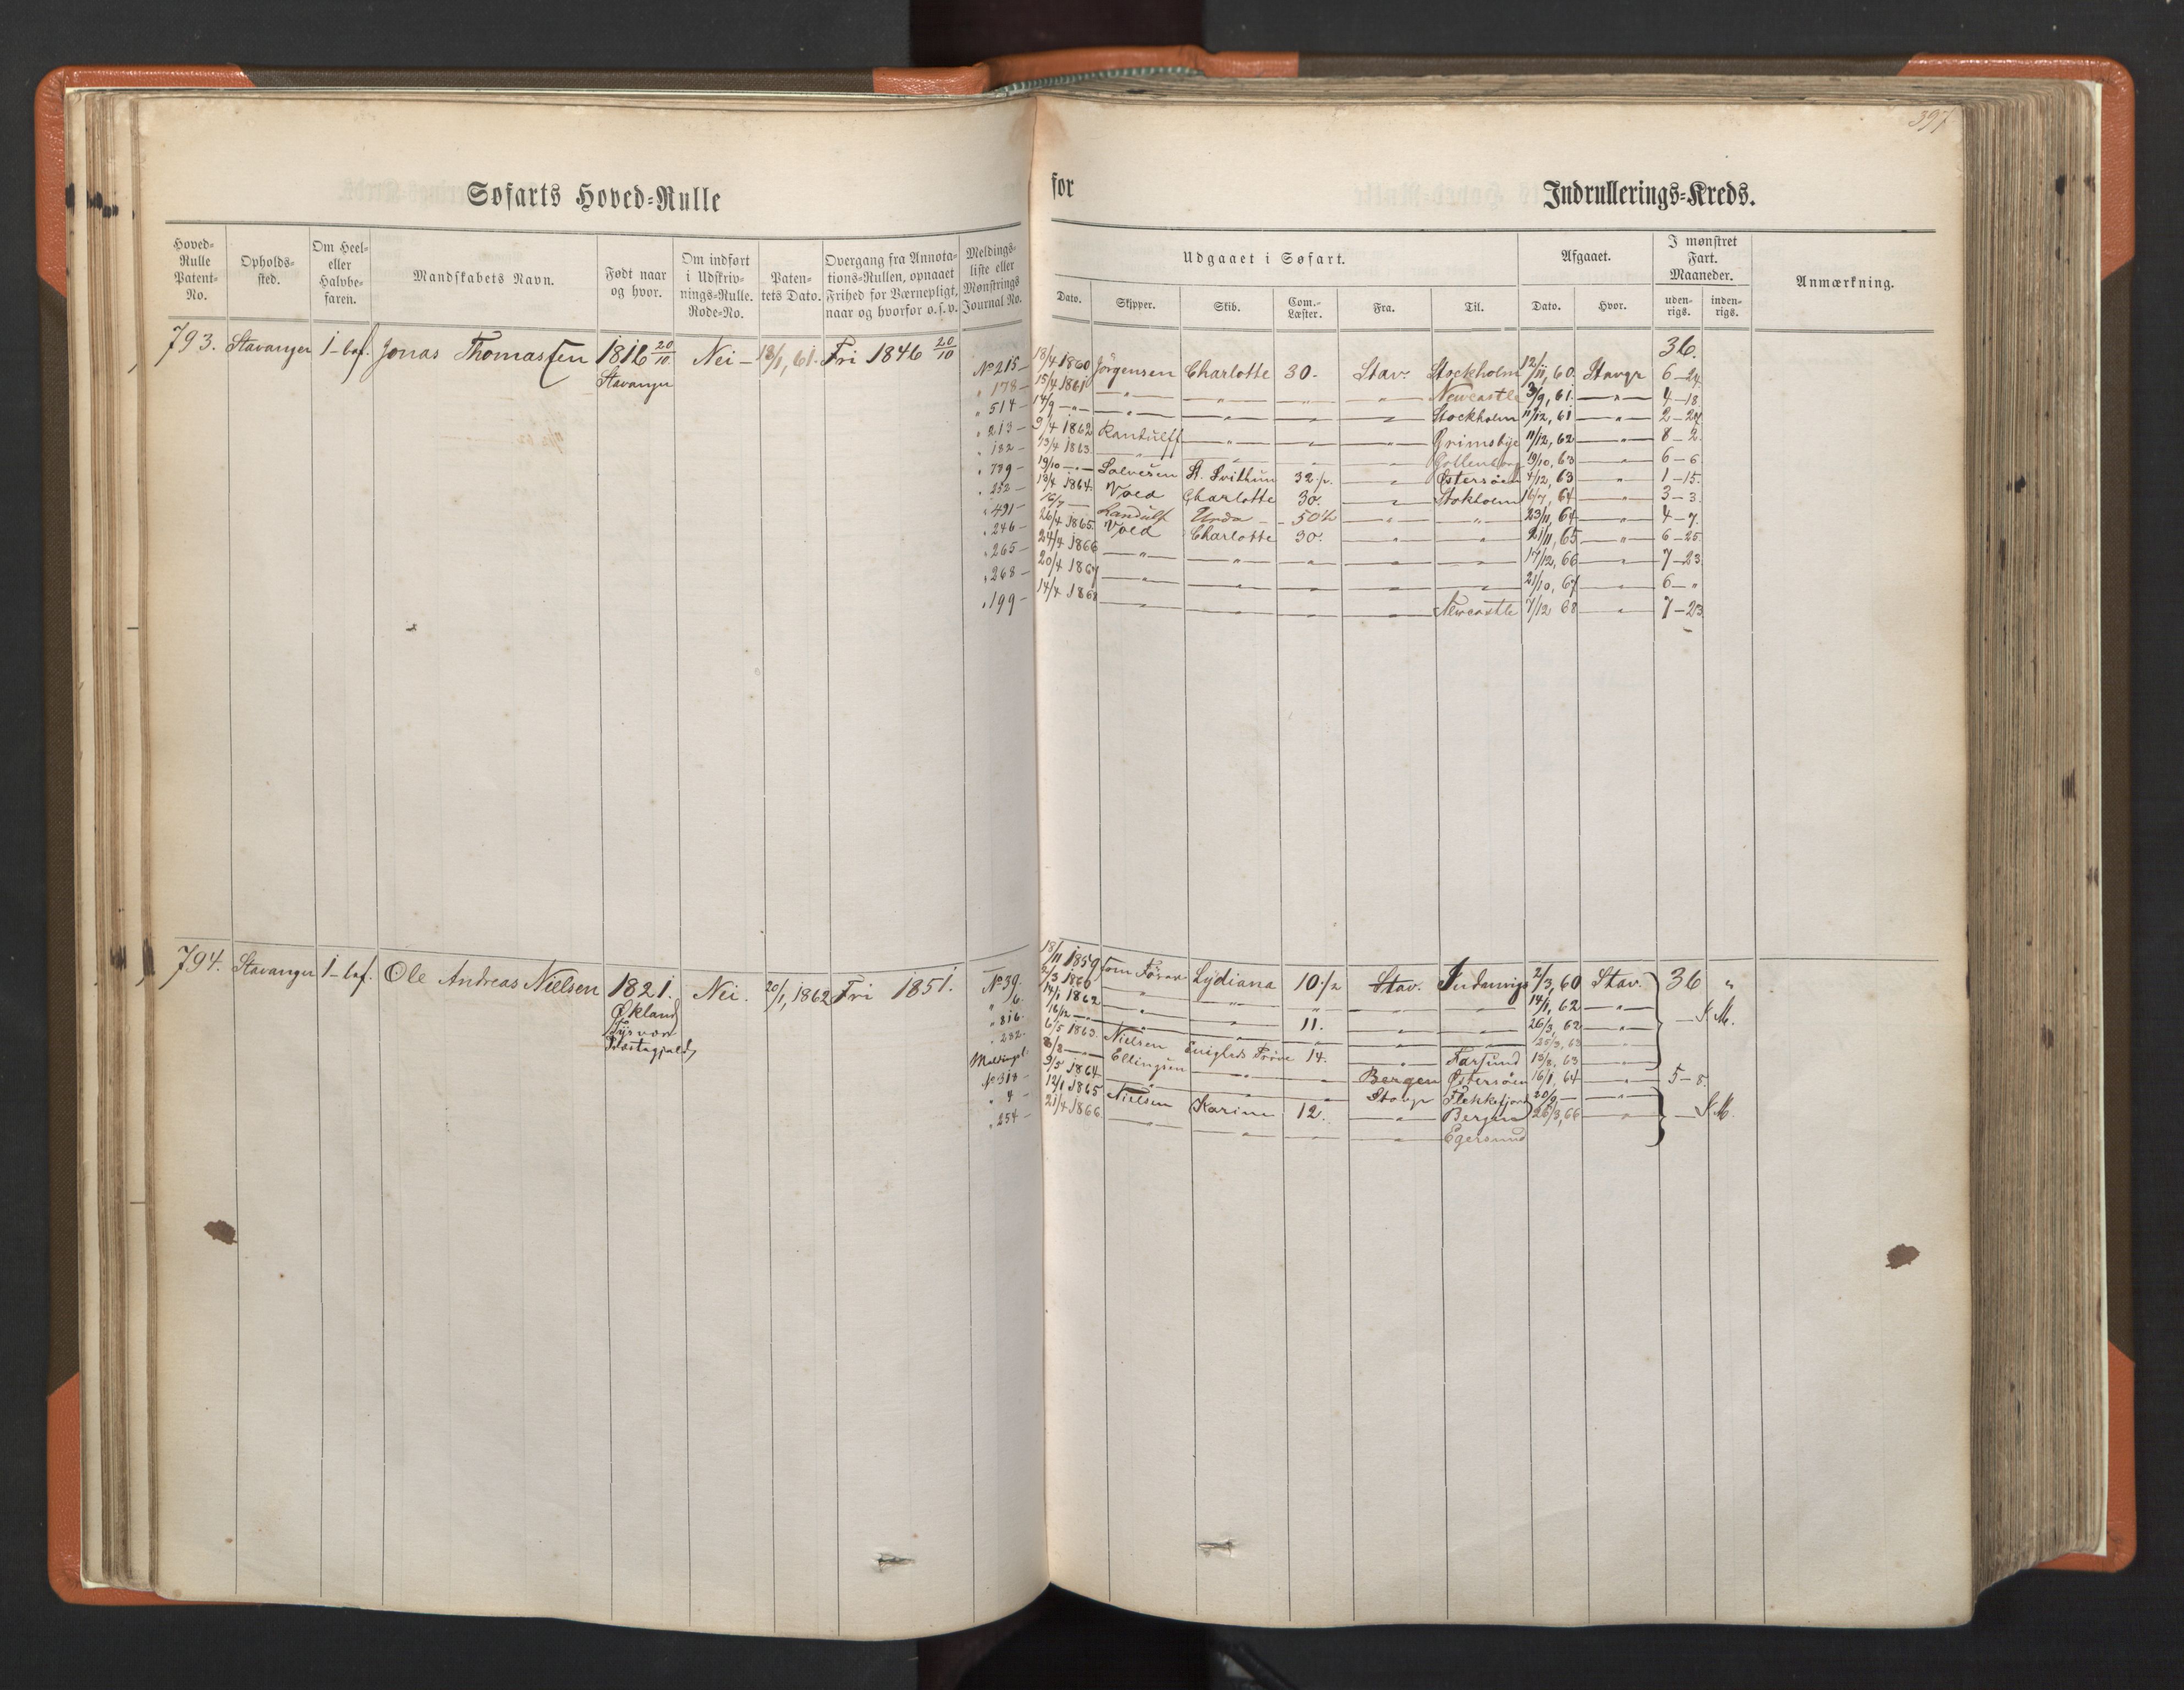 397
Søfarts Hoved-Rulle for Indrullerings-Kreds.
Hoved-Rulle Patent-No. Opholds-sted. Om Heel- eller Halvbe-faren. Mandskabets Navn. Født naar og hvor. Om indført i Udskriv-nings-Rulle. Rode-No. Paten-tets Dato. Overgang fra Annota-tions-Rullen, opnaaet Frihed for Værnepligt, naar og hvorfor o. s. v. Meldings-liste eller Mønstrings Journal No.
Udgaaet i Søfart. Afgaaet. I mønstret Fart. Maaneder. Anmærkning.
Dato. Skipper. Skib. Com.-Læster. Fra. Til. Dato. Hvor. uden-rigs. inden-rigs.
793. Stavanger 1-baf. Jonas Thomassen 1816 20/10. Nei - 18/1, 61. Fri 1846 20/10
Stavanger
36.
No 215 - 18/4 1860 Jørgensen Charlotte 30. Stav. Stockholm 12/11, 60. Stavgr 6-24
" 178 - 15/4 1861 — " — — " — — " — — " — Newcastle 3/9, 61. — " — 4-18
" 514 - 14/9 — " — — " — — " — — " — — " — Stockholm 11/12, 61 — " — 2-27
" 213 - 9/4 1862 Randulff — " — — " — — " — Grimsbye 11/12, 62 — " — 8-2
" 182 - 13/4 1863. — " — — " — — " — — " — 19/10, 63 — " — 6-6
" 789 - 19/10 — " — Salvesen St. Svithun 32 1/2. — " — Østersøen 4/12, 63 — " — 1-15.
" 252 - 13/4 1864. Vold Charlotte 30. — " — Stokholm 16/7, 64 — " — 3-3.
" 491 - 16/7 — Randulf — 50 1/2 — " — — " — 23/11, 64 — " — 4-7.
" 246 - 26/4 1865. Vold Charlotte 30. — " — — " — 21/11, 65 — " — 6-25
" 265 - 24/4 1866 — " — — " — — " — — " — — " — 17/12, 66 — " — 7-23
" 268 - 20/4 1867 — " — — " — — " — — " — — " — 21/10, 67 — " — 6-"
" 199 - 14/4 1868 — " — — " — — " — — " — Newcastle 7/12 68 — " — 7-23
794. Stavanger 1-baf. Ole Andreas Nielsen 1821. Nei. 20/1, 1862 Fri 1851.
Økland
Tysvær
Præstegjeld
No 39. 18/11 1859 som Fører Lydiana 10 1/2 Stav. Indenrigs 2/3, 60 Stav. 36 "
" 6. 2/3 1860 — " — — " — " — " — — " — 14/1, 62 — " —
" 816. 14/1 1862 — " — — " — 11. — " — — " — 26/3, 62 — " — — K.M.
" 282. 16/12 — " — — " — — " — — " — 25/3, 63 — " —
Meldingsl. 6/5 1863. Nielsen Enigheds Prøve 14. — " — Farsund 13/8, 63 — " —
8/8 — " — Ellingsen — " — — " — Bergen Østersøen 16/1, 64 — " — 5-8.
No 318 - 9/5 1864. — " — — " — — " — Stavgr Flekkefjord 20/9 — — " —
" 4 - 12/1 1865 Nielsen Karine 12. — " — Bergen 26/3, 66 — " — — K.M.
" 254 - 21/4 1866. — " — — " — — " — — " — Egersund